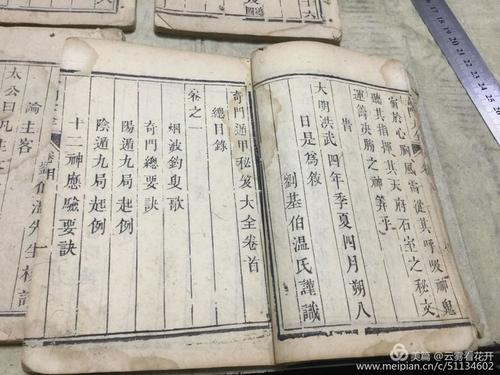 宙於心胸風雷從其呼吸神鬼
聽其指揮其天府石室之秘文
運籌决勝之神筭乎
旹
大明洪武四年季夏四月朔八
日是爲敘
劉基伯温氏謹識
奇門遁甲秘笈大全卷首
總目錄
卷之一
烟波釣叟歌
奇門總要訣
陽遁九局起例
陰遁九局起例
十二神應驗要訣
論主客
太公曰凡
美篇 @云雾看花开
www.meipian.cn/c/51134602